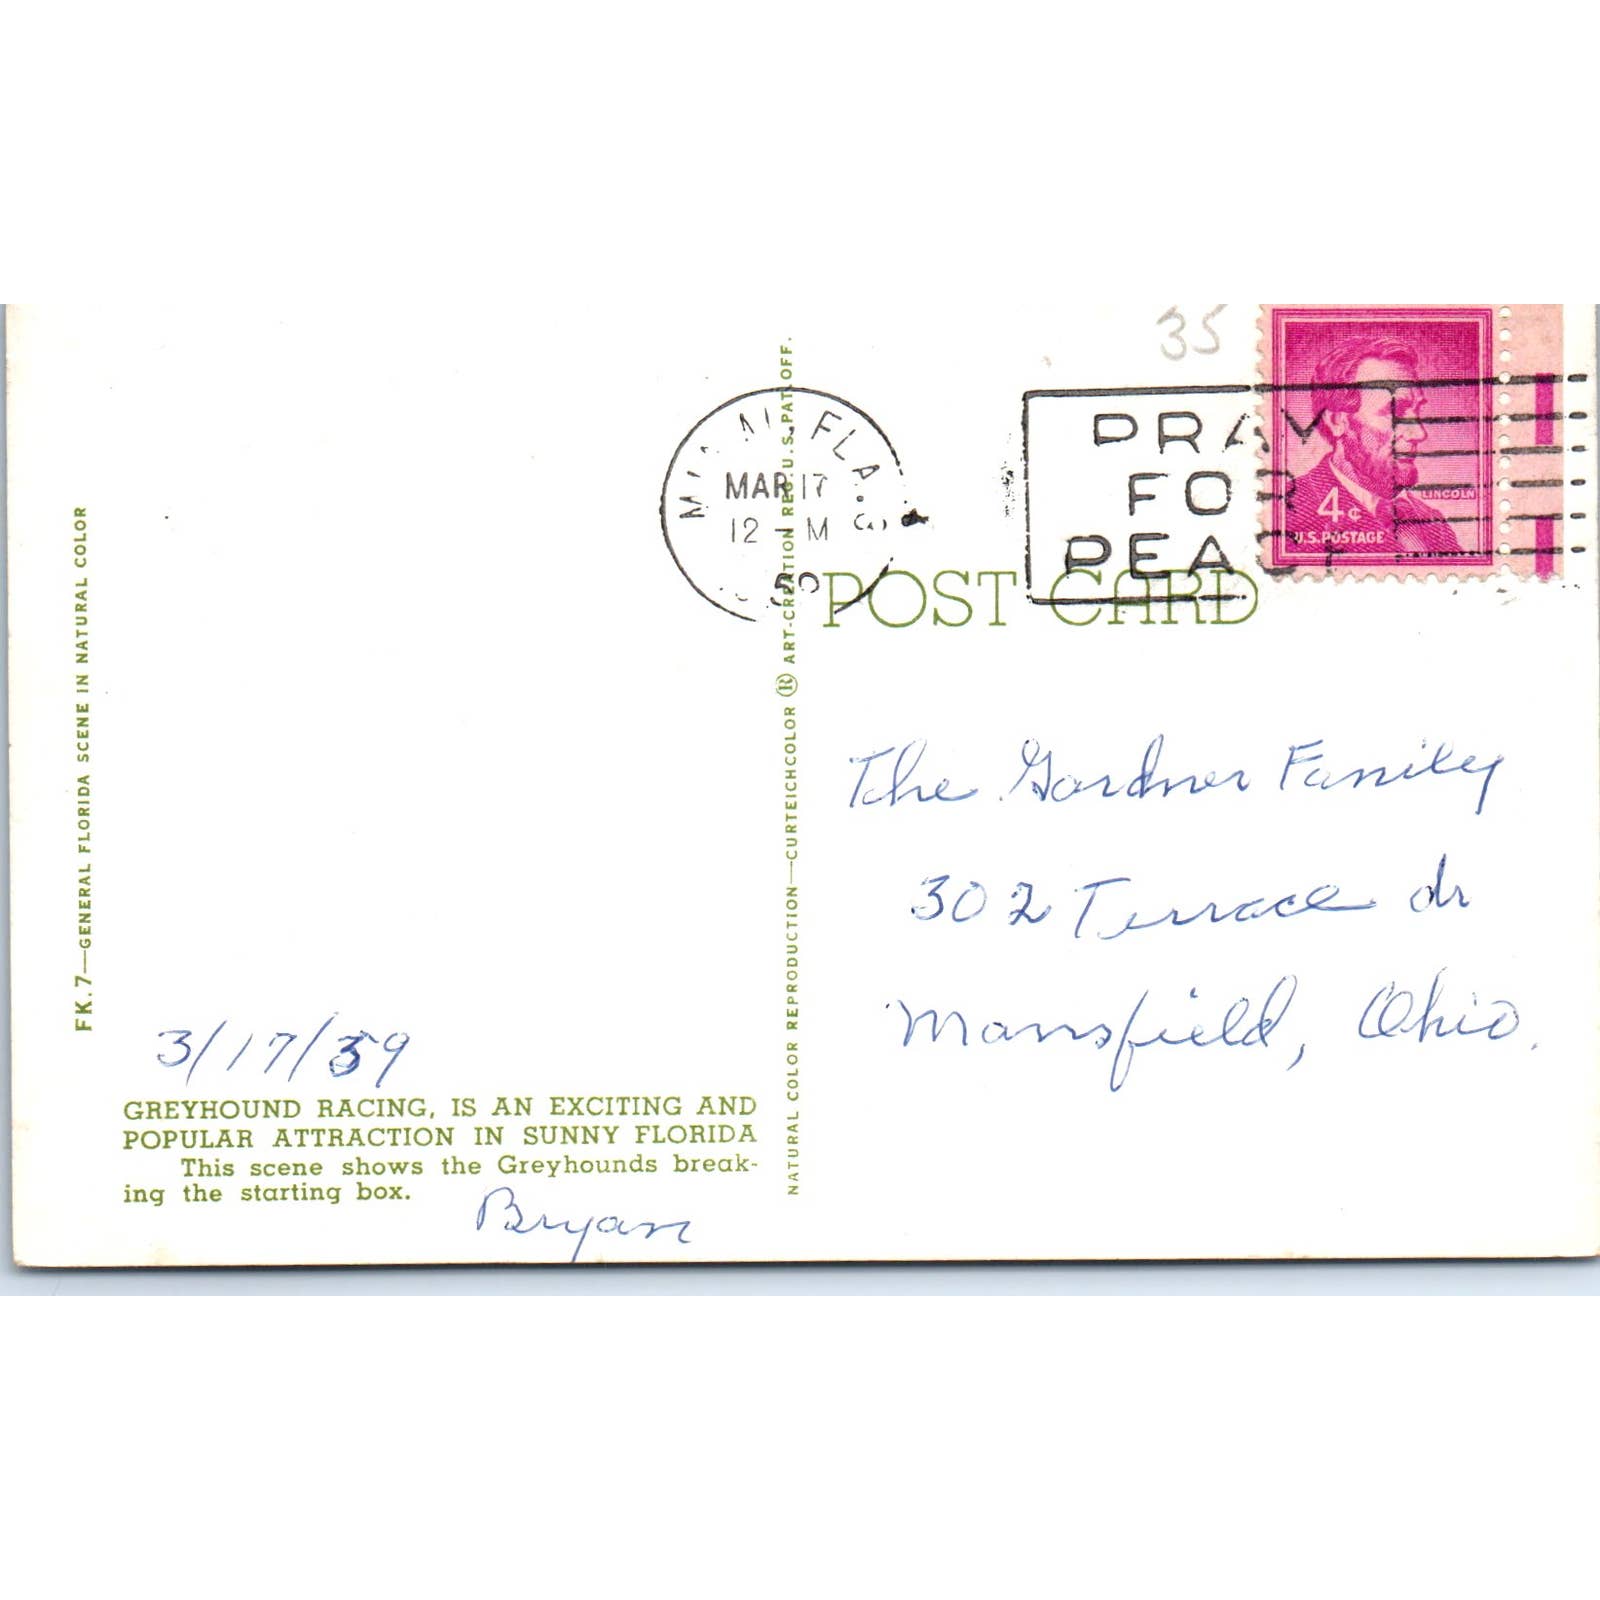 35
MIAMI, FLA.
MAR 17
12 M
59
PRAY
FOR
PEACE
4¢
LINCOLN
U.S. POSTAGE
POST CARD
FK.7—GENERAL FLORIDA SCENE IN NATURAL COLOR
NATURAL COLOR REPRODUCTION—CURTEICHCOLOR ® ART-CREATION REG. U.S. PAT. OFF.
The Gardner Family
302 Terrace dr
Mansfield, Ohio.
3/17/59
GREYHOUND RACING, IS AN EXCITING AND
POPULAR ATTRACTION IN SUNNY FLORIDA
This scene shows the Greyhounds break-
ing the starting box.
Bryan